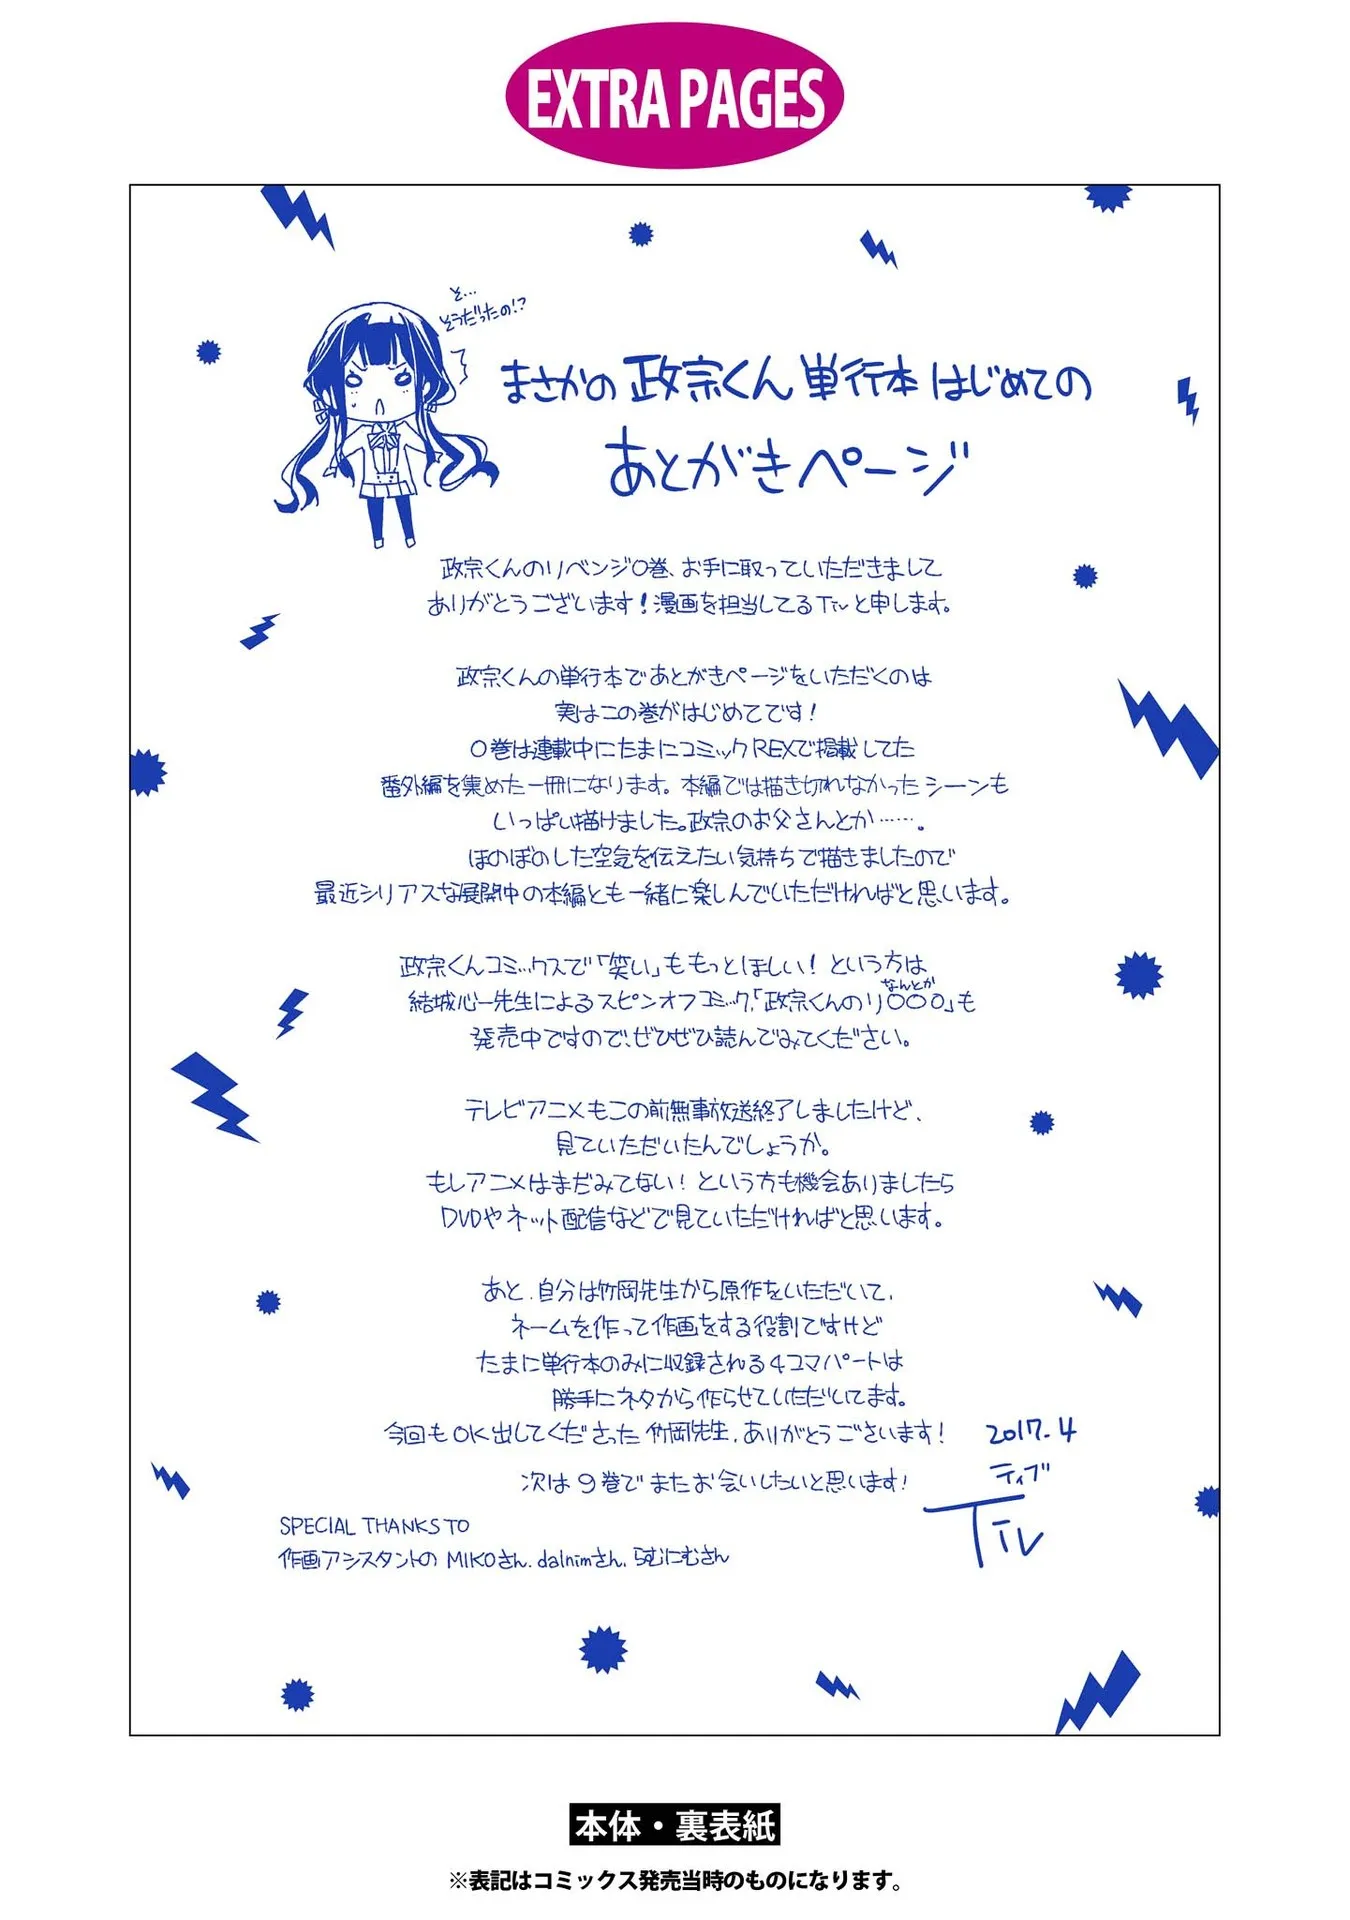 EXTRA PAGES
そ…
そうだったの!?
まさかの 政宗くん 単行本 はじめての
あとがきページ
政宗くんのリベンジ0巻、お手に取っていただきまして
ありがとうございます!漫画を担当してるTivと申します。
政宗くんの単行本であとがきページをいただくのは
実はこの巻がはじめてです!
0巻は連載中にたまにコミックREXで掲載してた
番外編を集めた一冊になります。本編では描き切れなかったシーンも
いっぱい描けました。政宗のお父さんとか……。
ほのぼのした空気を伝えたい気持ちで描きましたので
最近シリアスな展開中の本編とも一緒に楽しんでいただければと思います。
政宗くんコミックスで「笑い」ももっとほしい!という方は
なんとか
結城心一先生によるスピンオフコミック、「政宗くんのリ〇〇〇」も
発売中ですので、ぜひぜひ読んでみてください。
テレビアニメもこの前無事放送終了しましたけど、
見ていただいたんでしょうか。
もしアニメはまだみてない!という方も機会ありましたら
DVDやネット配信などで見ていただければと思います。
あと、自分は竹岡先生から原作をいただいて、
ネームを作って作画をする役割ですけど
たまに単行本のみに収録される4コマパートは
勝手にネタから作らせていただいてます。
今回もOK出してくださった竹岡先生、ありがとうございます!
次は9巻でまたお会いしたいと思います!
2017.4
ティブ
Tiv
SPECIAL THANKS TO
作画アシスタントの MIKOさん、dalnimさん、らむにむさん
本体・裏表紙
※表記はコミックス発売当時のものになります。